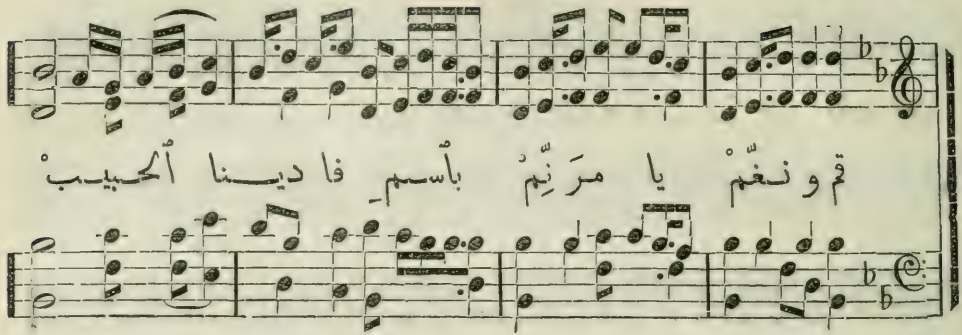 قم و نـغَّمْ يا مرَنِّمْ بٱسـمِ فاديـنا ٱلحبيبْ